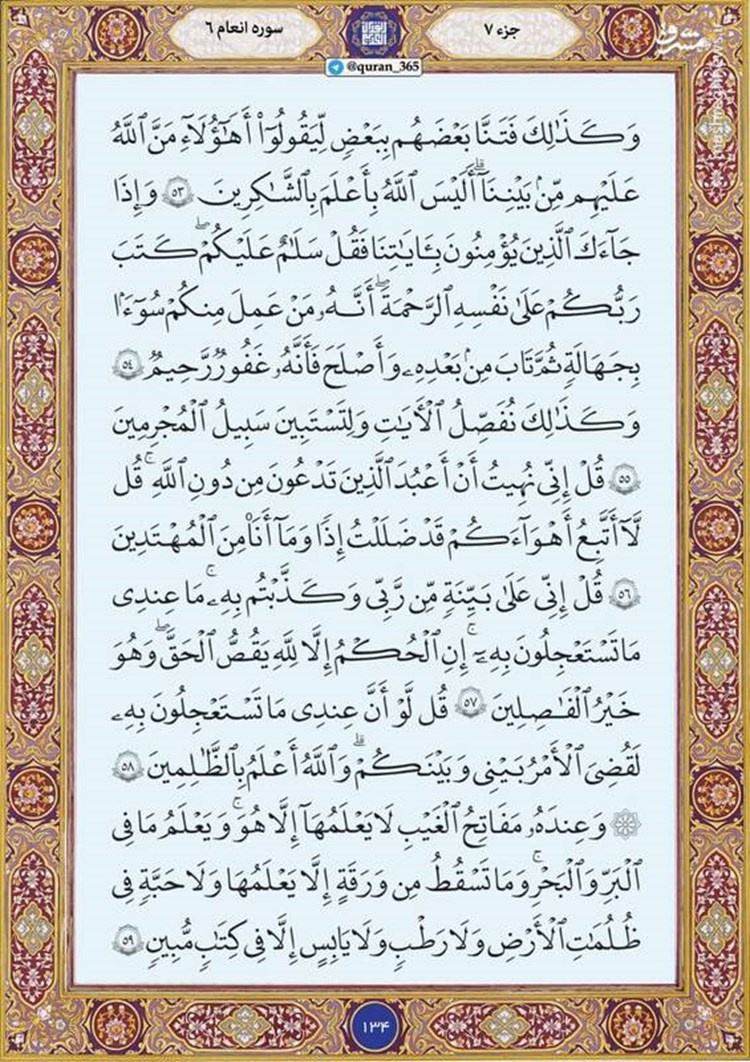 جزء ۷
سوره انعام ۶
@quran_365
وَكَذَٰلِكَ فَتَنَّا بَعْضَهُم بِبَعْضٍ لِّيَقُولُوٓا۟ أَهَٰٓؤُلَآءِ مَنَّ ٱللَّهُ
عَلَيْهِم مِّنۢ بَيْنِنَآ ۗ أَلَيْسَ ٱللَّهُ بِأَعْلَمَ بِٱلشَّٰكِرِينَ ٥٣ وَإِذَا
جَآءَكَ ٱلَّذِينَ يُؤْمِنُونَ بِـَٔايَٰتِنَا فَقُلْ سَلَٰمٌ عَلَيْكُمْ ۖ كَتَبَ
رَبُّكُمْ عَلَىٰ نَفْسِهِ ٱلرَّحْمَةَ ۖ أَنَّهُۥ مَنْ عَمِلَ مِنكُمْ سُوٓءًۢا
بِجَهَٰلَةٍ ثُمَّ تَابَ مِنۢ بَعْدِهِۦ وَأَصْلَحَ فَأَنَّهُۥ غَفُورٌ رَّحِيمٌ ٥٤
وَكَذَٰلِكَ نُفَصِّلُ ٱلْـَٔايَٰتِ وَلِتَسْتَبِينَ سَبِيلُ ٱلْمُجْرِمِينَ
٥٥ قُلْ إِنِّى نُهِيتُ أَنْ أَعْبُدَ ٱلَّذِينَ تَدْعُونَ مِن دُونِ ٱللَّهِ ۚ قُل
لَّآ أَتَّبِعُ أَهْوَآءَكُمْ قَدْ ضَلَلْتُ إِذًا وَمَآ أَنَا۠ مِنَ ٱلْمُهْتَدِينَ
٥٦ قُلْ إِنِّى عَلَىٰ بَيِّنَةٍ مِّن رَّبِّى وَكَذَّبْتُم بِهِۦ ۚ مَا عِندِى
مَا تَسْتَعْجِلُونَ بِهِۦٓ ۚ إِنِ ٱلْحُكْمُ إِلَّا لِلَّهِ يَقُصُّ ٱلْحَقَّ ۖ وَهُوَ
خَيْرُ ٱلْفَٰصِلِينَ ٥٧ قُل لَّوْ أَنَّ عِندِى مَا تَسْتَعْجِلُونَ بِهِۦ
لَقُضِىَ ٱلْأَمْرُ بَيْنِى وَبَيْنَكُمْ ۗ وَٱللَّهُ أَعْلَمُ بِٱلظَّٰلِمِينَ ٥٨
۞ وَعِندَهُۥ مَفَاتِحُ ٱلْغَيْبِ لَا يَعْلَمُهَآ إِلَّا هُوَ ۚ وَيَعْلَمُ مَا فِى
ٱلْبَرِّ وَٱلْبَحْرِ ۚ وَمَا تَسْقُطُ مِن وَرَقَةٍ إِلَّا يَعْلَمُهَا وَلَا حَبَّةٍ فِى
ظُلُمَٰتِ ٱلْأَرْضِ وَلَا رَطْبٍ وَلَا يَابِسٍ إِلَّا فِى كِتَٰبٍ مُّبِينٍ ٥٩
۱۳۴